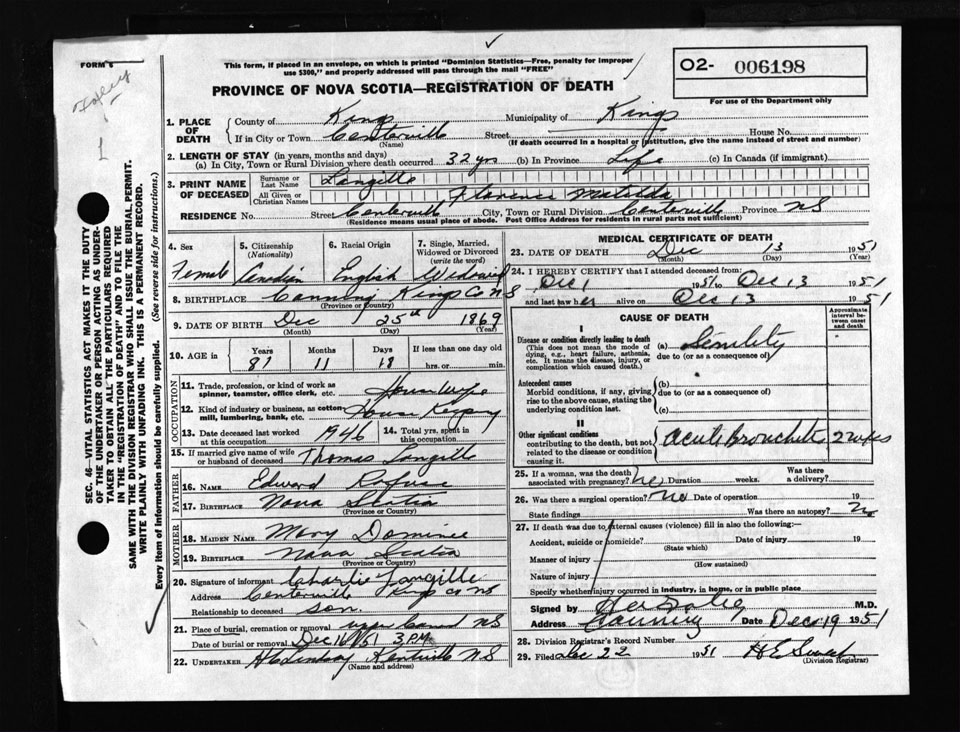 FORM 6
This form, if placed in an envelope, on which is printed "Dominion Statistics—Free, penalty for improper
use $300," and properly addressed will pass through the mail "FREE"
O2- 006198
For use of the Department only
PROVINCE OF NOVA SCOTIA—REGISTRATION OF DEATH
1. PLACE OF DEATH County of Kings Municipality of Kings
If in City or Town Centerville Street House No.
(Name) (If death occurred in a hospital or institution, give the name instead of street and number)
2. LENGTH OF STAY (in years, months and days)
(a) In City, Town or Rural Division where death occurred 32 yrs (b) In Province Life (c) In Canada (if immigrant)
3. PRINT NAME OF DECEASED Surname or Last Name Langille
All Given or Christian Names Florence Matilda
RESIDENCE No. Street Centerville City, Town or Rural Division Centerville Province NS
(Residence means usual place of abode. Post Office Address for residents in rural parts not sufficient)
4. Sex 5. Citizenship (Nationality) 6. Racial Origin 7. Single, Married, Widowed or Divorced (write the word)
Female Canadian English Widowed
8. BIRTHPLACE Canning Kings Co NS
(Province or Country)
9. DATE OF BIRTH Dec 25th 1869
(Month) (Day) (Year)
10. AGE in Years Months Days If less than one day old
81 11 18 hrs. or min.
OCCUPATION
11. Trade, profession, or kind of work as spinner, teamster, office clerk, etc. Housewife
12. Kind of industry or business, as cotton mill, lumbering, bank, etc. House Keeping
13. Date deceased last worked at this occupation 1946 14. Total yrs. spent in this occupation
15. If married give name of wife or husband of deceased Thomas Langille
FATHER
16. Name Edward Rafuse
17. BIRTHPLACE Nova Scotia
(Province or Country)
MOTHER
18. MAIDEN NAME Mary Dominee
19. BIRTHPLACE Nova Scotia
(Province or Country)
20. Signature of informant Charlie Langille
Address Centerville Kings Co NS
Relationship to deceased son.
21. Place of burial, cremation or removal NS
Date of burial or removal Dec 16/51 3 P.M.
22. UNDERTAKER Kentville NS
(Name and address)
MEDICAL CERTIFICATE OF DEATH
23. DATE OF DEATH Dec 13 1951
(Month) (Day) (Year)
24. I HEREBY CERTIFY that I attended deceased from:
Dec 1 1951 to Dec 13 1951
and last saw her alive on Dec 13 1951
CAUSE OF DEATH
Approximate interval between onset and death
I
Disease or condition directly leading to death (a) Senility
(This does not mean the mode of dying, e.g., heart failure, asthenia, etc. It means the disease, injury, or complication which caused death.) due to (or as a consequence of)
Antecedent causes (b)
Morbid conditions, if any, giving rise to the above cause, stating the underlying condition last. due to (or as a consequence of)
(c)
II
Other significant conditions
contributing to the death, but not related to the disease or condition causing it. Acute Bronchitis 2 wks
25. If a woman, was the death associated with pregnancy? no Duration weeks. Was there a delivery?
26. Was there a surgical operation? no Date of operation 19
State findings Was there an autopsy? No
27. If death was due to external causes (violence) fill in also the following:—
Accident, suicide or homicide? Date of injury 19
(State which)
Manner of injury
(How sustained)
Nature of injury
Specify whether injury occurred in industry, in home, or in public place
Signed by M.D.
Address Canning Date Dec 19 1951
28. Division Registrar's Record Number
29. Filed Dec 22 1951
(Division Registrar)
SEC. 46—VITAL STATISTICS ACT MAKES IT THE DUTY
OF THE UNDERTAKER OR PERSON ACTING AS UNDER-
TAKER TO OBTAIN ALL THE PARTICULARS REQUIRED
IN THE "REGISTRATION OF DEATH" AND TO FILE THE
SAME WITH THE DIVISION REGISTRAR WHO SHALL ISSUE THE BURIAL PERMIT.
WRITE PLAINLY WITH UNFADING INK. THIS IS A PERMANENT RECORD.
Every item of information should be carefully supplied. (See reverse side for instructions.)